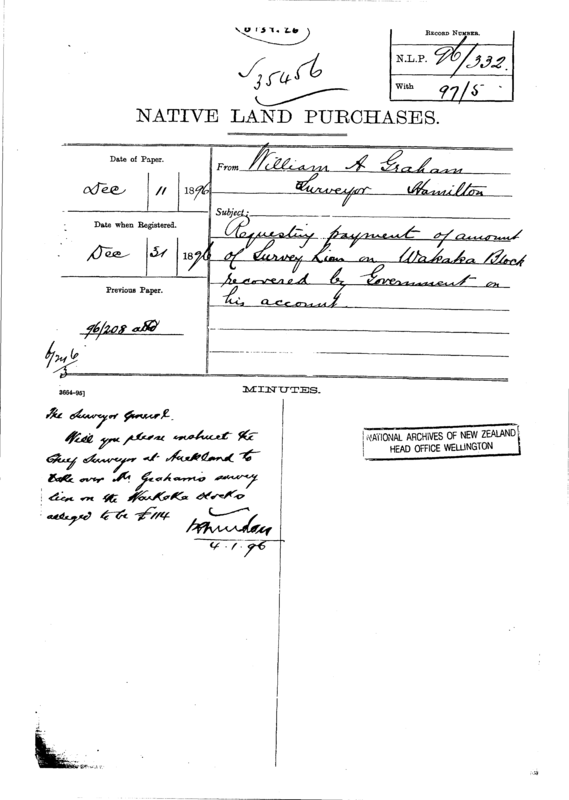 RECORD NUMBER.
N.L.P. 96/332.
With 97/5
35456
NATIVE LAND PURCHASES.
Date of Paper.
Dec 11 1896
Date when Registered.
Dec 31 1896
Previous Paper.
96/208
From William A Graham
Surveyor Hamilton
Subject;
Requesting payment of amount
of Survey Lien on Wakaka Block
recovered by Government on
his account
2664-95]
MINUTES.
The Surveyor General.
Will you please instruct the
Chief Surveyor at Auckland to
take over Mr Graham's survey
lien on the blocks
alleged to be £114
4.1.96
NATIONAL ARCHIVES OF NEW ZEALAND
HEAD OFFICE WELLINGTON